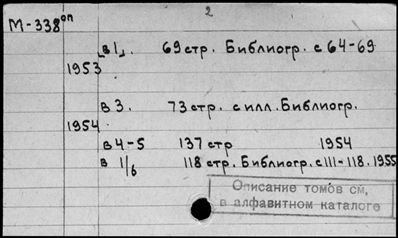 2
М-338оп
в 1. 69 стр. Библиогр. с 64-69
1953
в 3. 73 стр. с илл. Библиогр.
1954
в 4-5 137 стр 1954
в 1/6 118 стр. Библиогр. с 111-118. 1955
Описание томов см,
в алфавитном каталоге